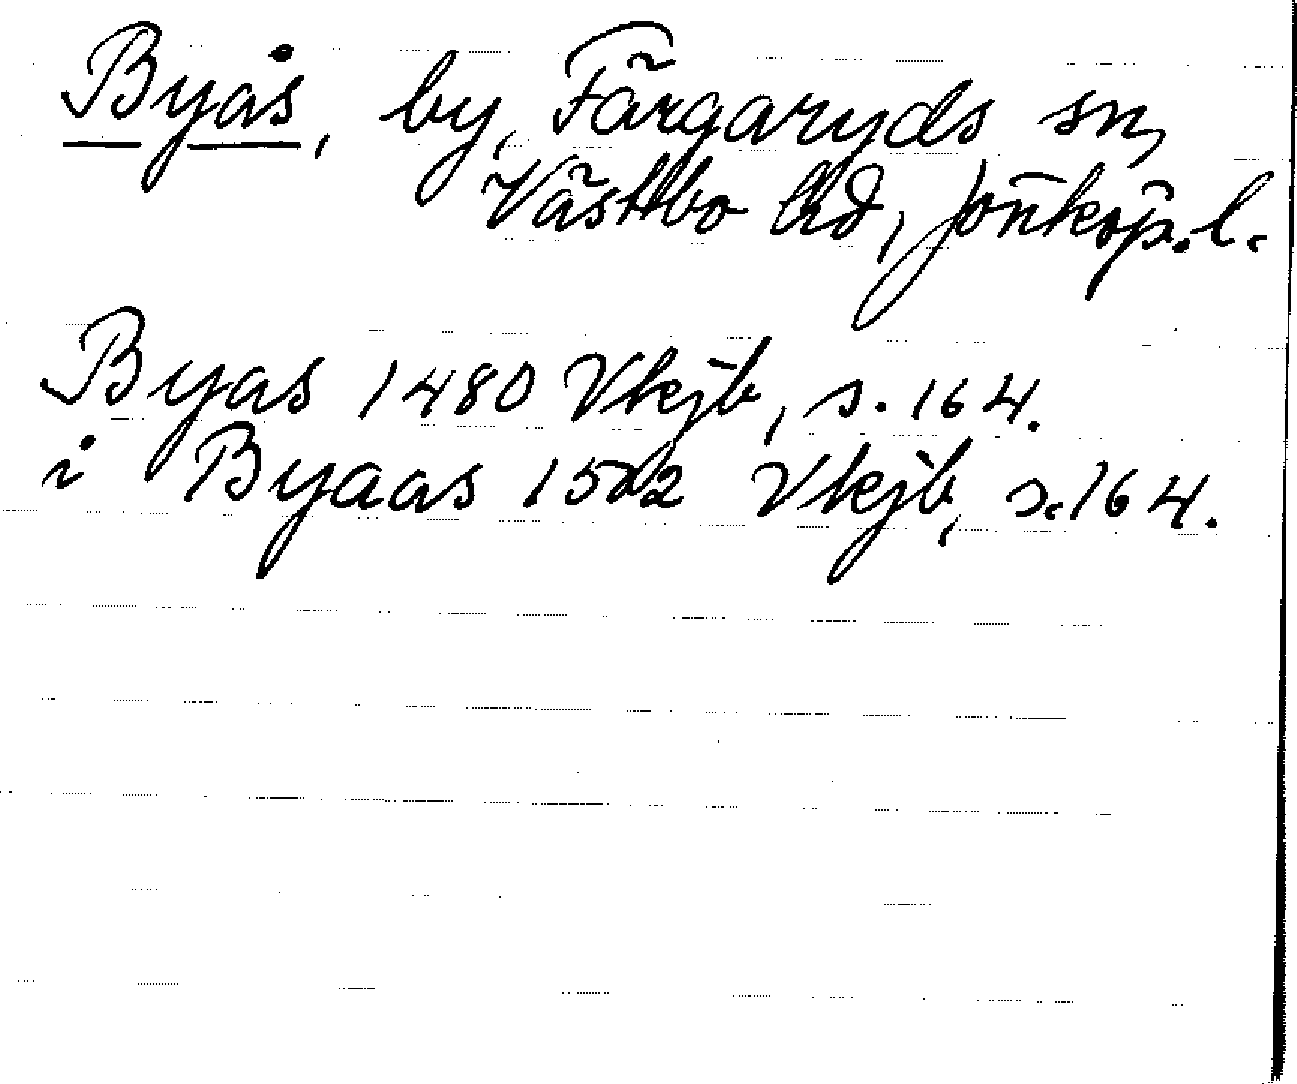 Byås, by, Färgaryds sn,
Västbo hd, Jönköp. l.
Byas 1480 Vkjb, s. 164.
i Byaas 1502 Vkjb, s. 164.